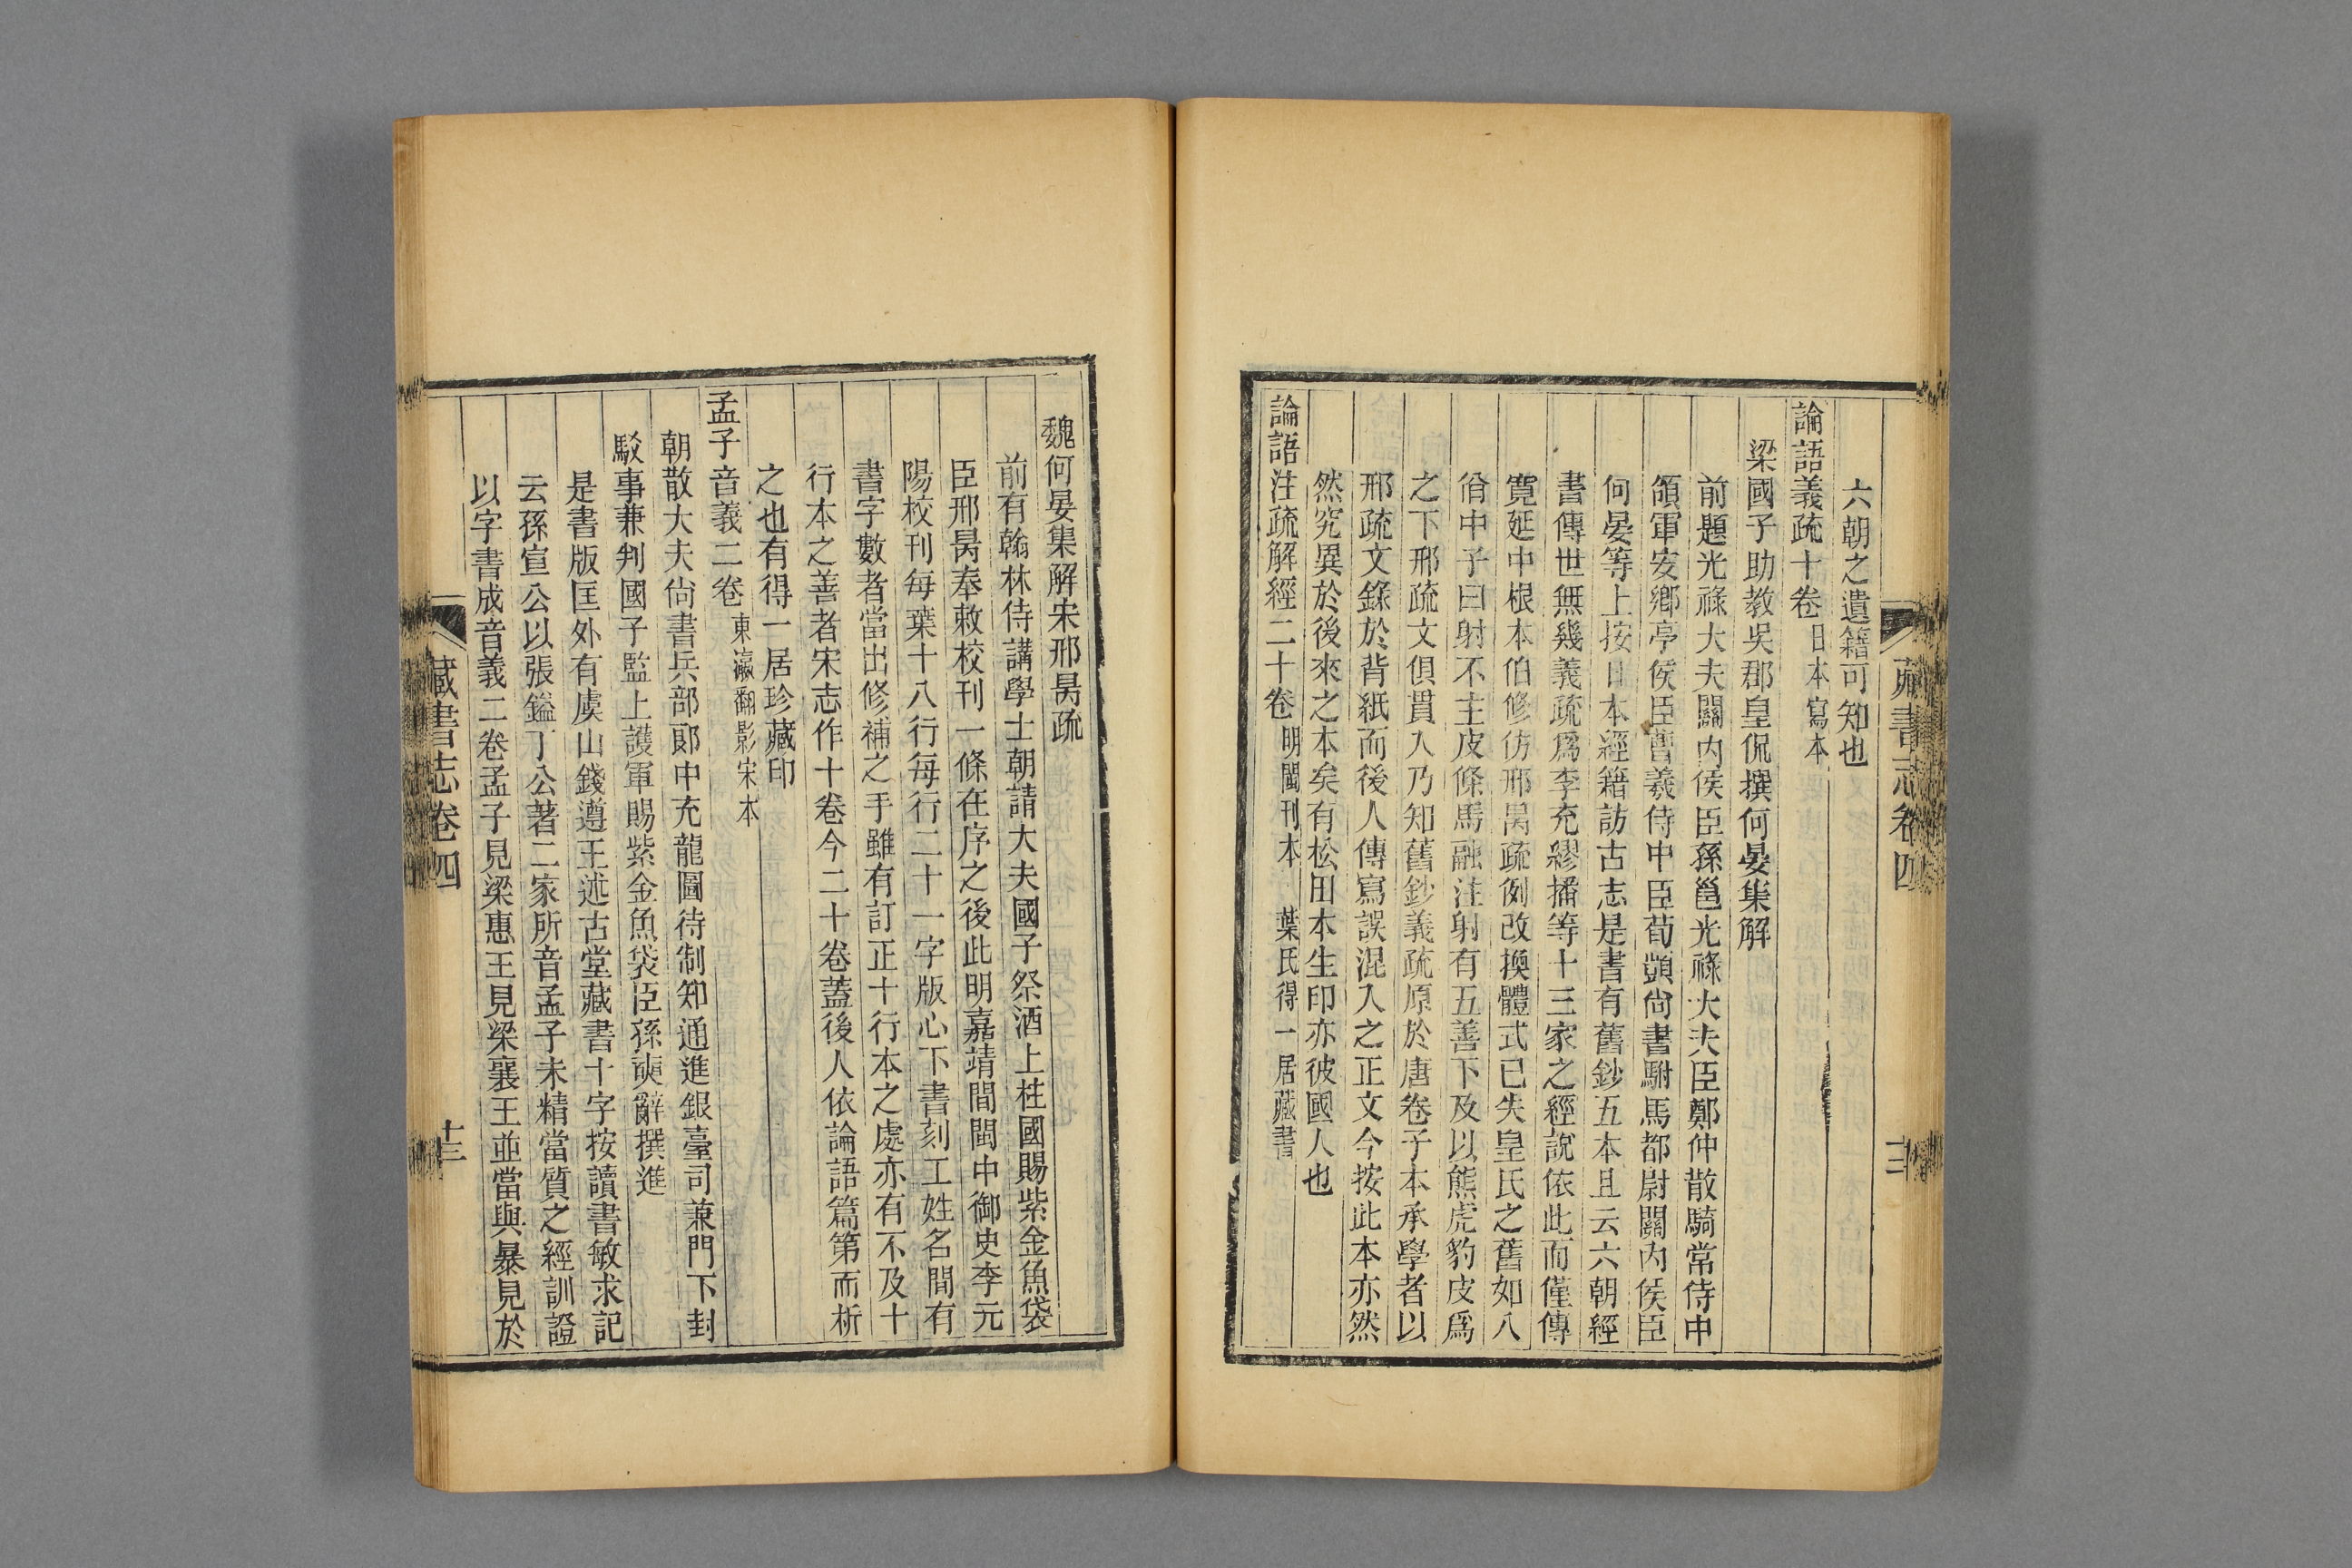 藏書志卷四
六朝之遺籍可知也
論語義疏十卷 日本寫本
梁國子助教吳郡皇侃撰何晏集解
前題光祿大夫關內侯臣孫邕光祿大夫臣鄭仲散騎常侍中
領軍安鄉亭侯臣曹羲侍中臣荀顗尙書駙馬都尉關內侯臣
何晏等上按日本經籍訪古志是書有舊鈔五本且云六朝經
書傳世無幾義疏爲李充繆播等十三家之經說依此而僅傳
寬延中根本伯修仿邢昺疏例改換體式已失皇氏之舊如八
佾中子曰射不主皮條馬融注射有五善下及以熊虎豹皮爲
之下邢疏文俱貫入乃知舊鈔義疏原於唐卷子本承學者以
邢疏文錄於背紙而後人傳寫誤混入之正文今按此本亦然
然究異於後來之本矣有松田本生印亦彼國人也
論語注疏解經二十卷 明閩刊本 葉氏得一居藏書
魏何晏集解宋邢昺疏
前有翰林侍講學士朝請大夫國子祭酒上柱國賜紫金魚袋
臣邢昺奉敕校刊一條在序之後此明嘉靖間閩中御史李元
陽校刊每葉十八行每行二十一字版心下書刻工姓名間有
書字數者當出修補之手雖有訂正十行本之處亦有不及十
行本之善者宋志作十卷今二十卷蓋後人依論語篇第而析
之也有得一居珍藏印
孟子音義二卷 東瀛翻影宋本
朝散大夫尙書兵部郞中充龍圖待制知通進銀臺司兼門下封
駁事兼判國子監上護軍賜紫金魚袋臣孫奭辭撰進
是書版匡外有虞山錢遵王述古堂藏書十字按讀書敏求記
云孫宣公以張鎰丁公著二家所音孟子未精當質之經訓證
以字書成音義二卷孟子見梁惠王見梁襄王並當與暴見於
藏書志卷四
十三